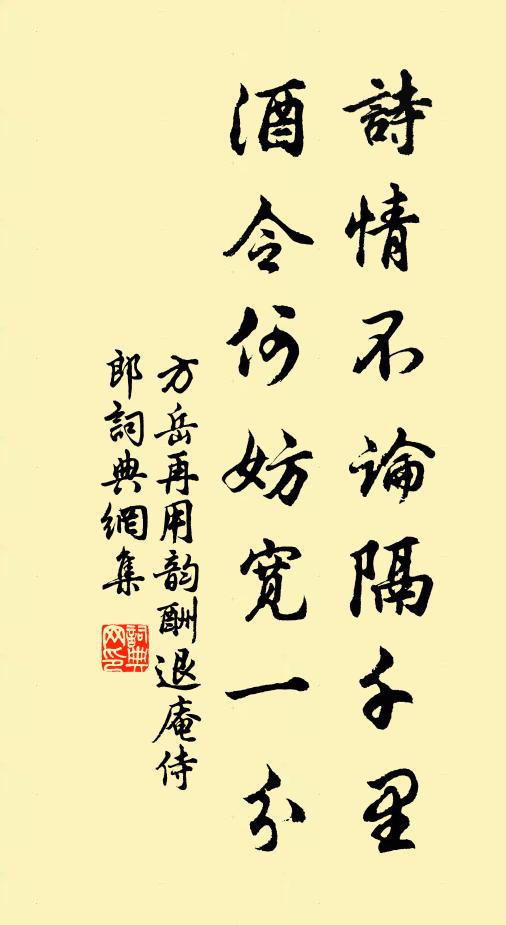 詩情不論隔千里
酒令何妨寬一分
方岳再用韵酬退庵侍
郎詞典網集
詞典
网印